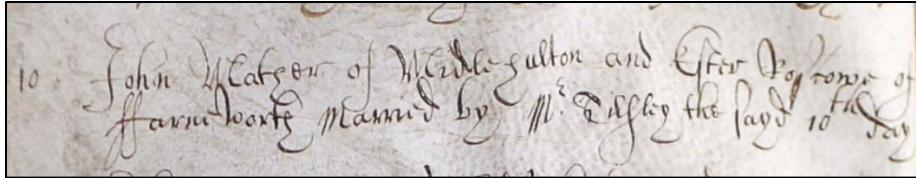 10 John Mather of Midlehulton and Ester Roscowe of
ffarnworth Married by Mr Tilsley the sayd 10th day